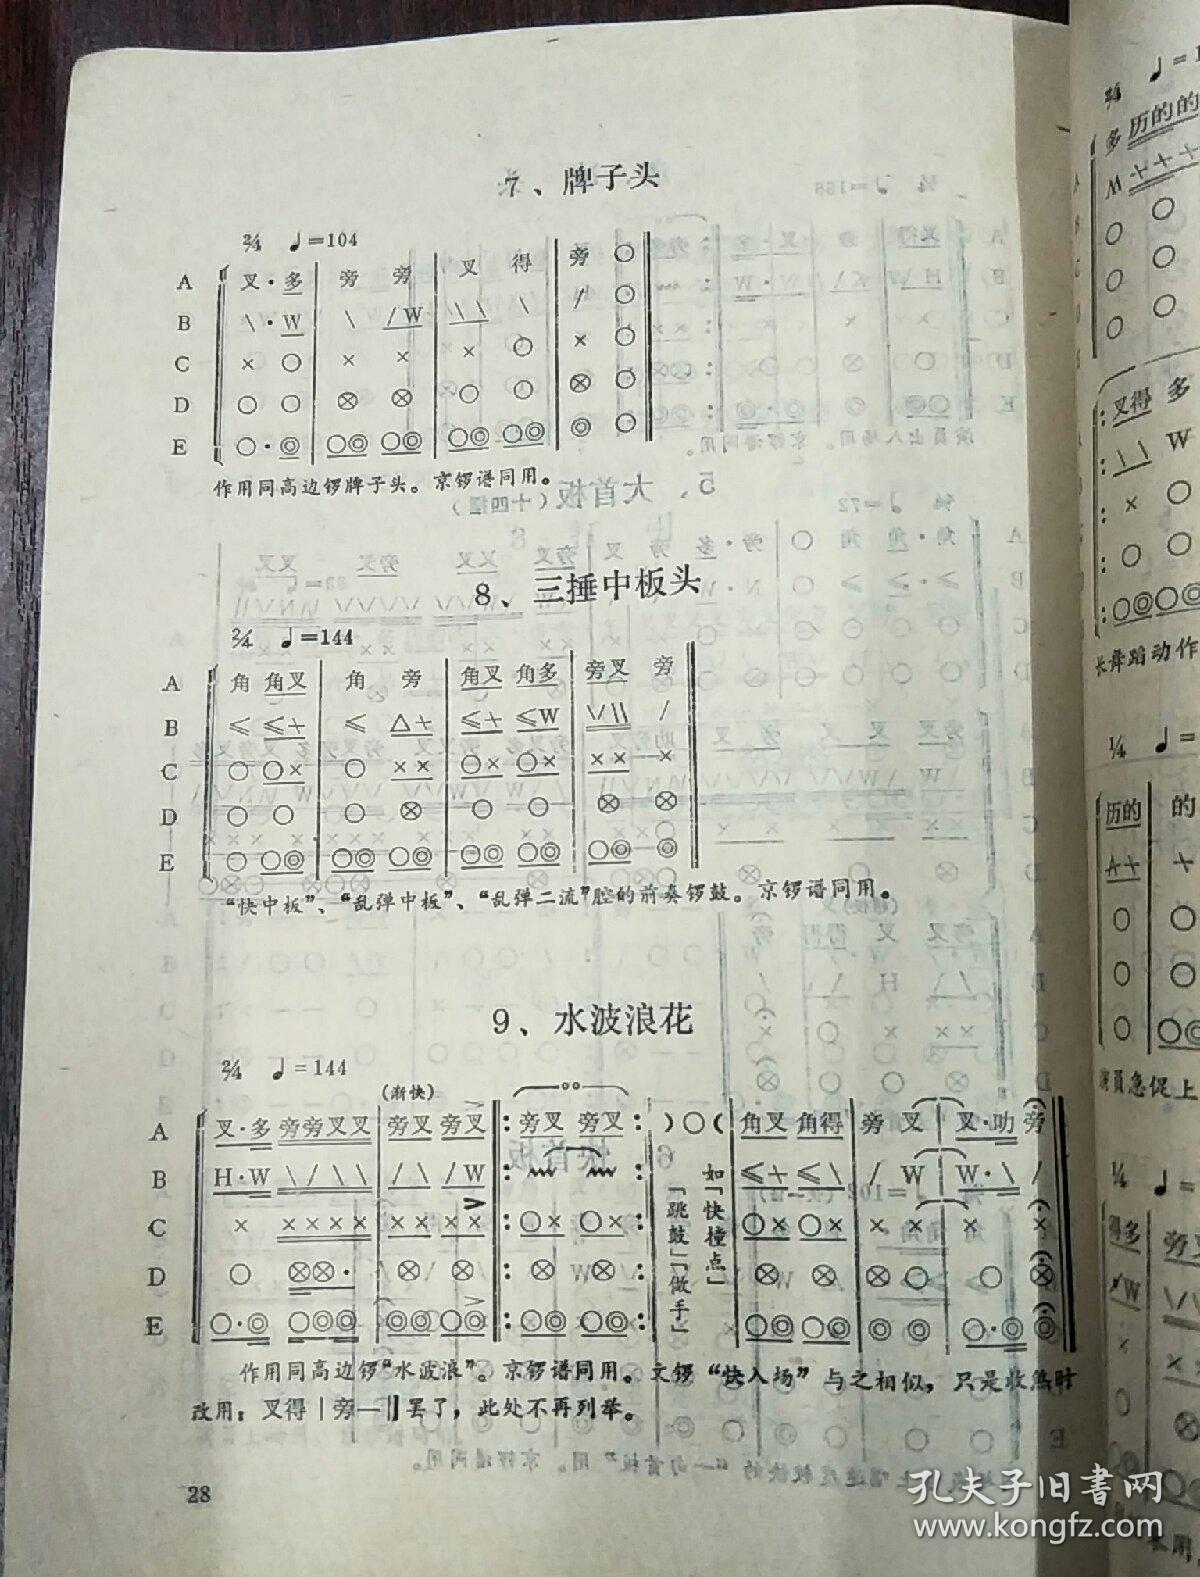 7、牌子头
2/4 ♩=104
A 叉·多 | 旁 旁 | 叉 得 | 旁 ○
B \·W | \ /W | \\ \ | / ○
C × ○ | × × | × ○ | × ○
D ○ ○ | ⊗ ⊗ | ○ ○ | ⊗ ○
E ○·◎ | ○◎ ○◎ | ○◎ ○◎ | ◎ ○
作用同高边锣牌子头。京锣谱同用。
8、三捶中板头
2/4 ♩=144
A 角 角叉 | 角 旁 | 角叉 角多 | 旁叉 旁
B ≤ ≤+ | ≤ △+ | ≤+ ≤W | \/\\ /
C ○ ○× | ○ ×× | ○× ○× | ×× ×
D ○ ○ | ○ ⊗ | ○ ○ | ⊗ ⊗
E ○ ○◎ | ○◎ ○◎ | ○◎ ○◎ | ○◎ ◎
“快中板”、“乱弹中板”、“乱弹二流”腔的前奏锣鼓。京锣谱同用。
9、水波浪花
2/4 ♩=144
(渐快)
A 叉·多 旁旁叉叉 | 旁叉 旁叉 ‖: 旁叉 旁叉 :| )○( | 角叉 角得 | 旁 叉 | 叉·叻 旁
B H·W \/\\ | /\ /W ‖: :| | ≤+ ≤\ | / W | W·\ /
C × ×××× | ×× ×× ‖: ○× ○× :| | ○× ○× | × × | × ×
D ○ ⊗⊗· | ⊗ ⊗ ‖: ⊗ ⊗ :| | ⊗ ⊗ | ⊗ ○ | ○ ⊗
E ○·◎ ○◎◎ | ◎◎ ○◎ ‖: ○◎ ○◎ :| | ○◎ ○◎ | ◎ ◎ | ○·◎ ◎
如「快撞点」
「跳鼓」「做手」
作用同高边锣“水波浪”。京锣谱同用。文锣“快入场”与之相似，只是收煞时
改用：叉得｜旁—‖罢了，此处不再列举。
28
多 历的的
叉得 多
长舞蹈动作
1/4 ♩=
历的 的
演员急促上
1/4 ♩=
得多
孔夫子旧书网
www.kongfz.com